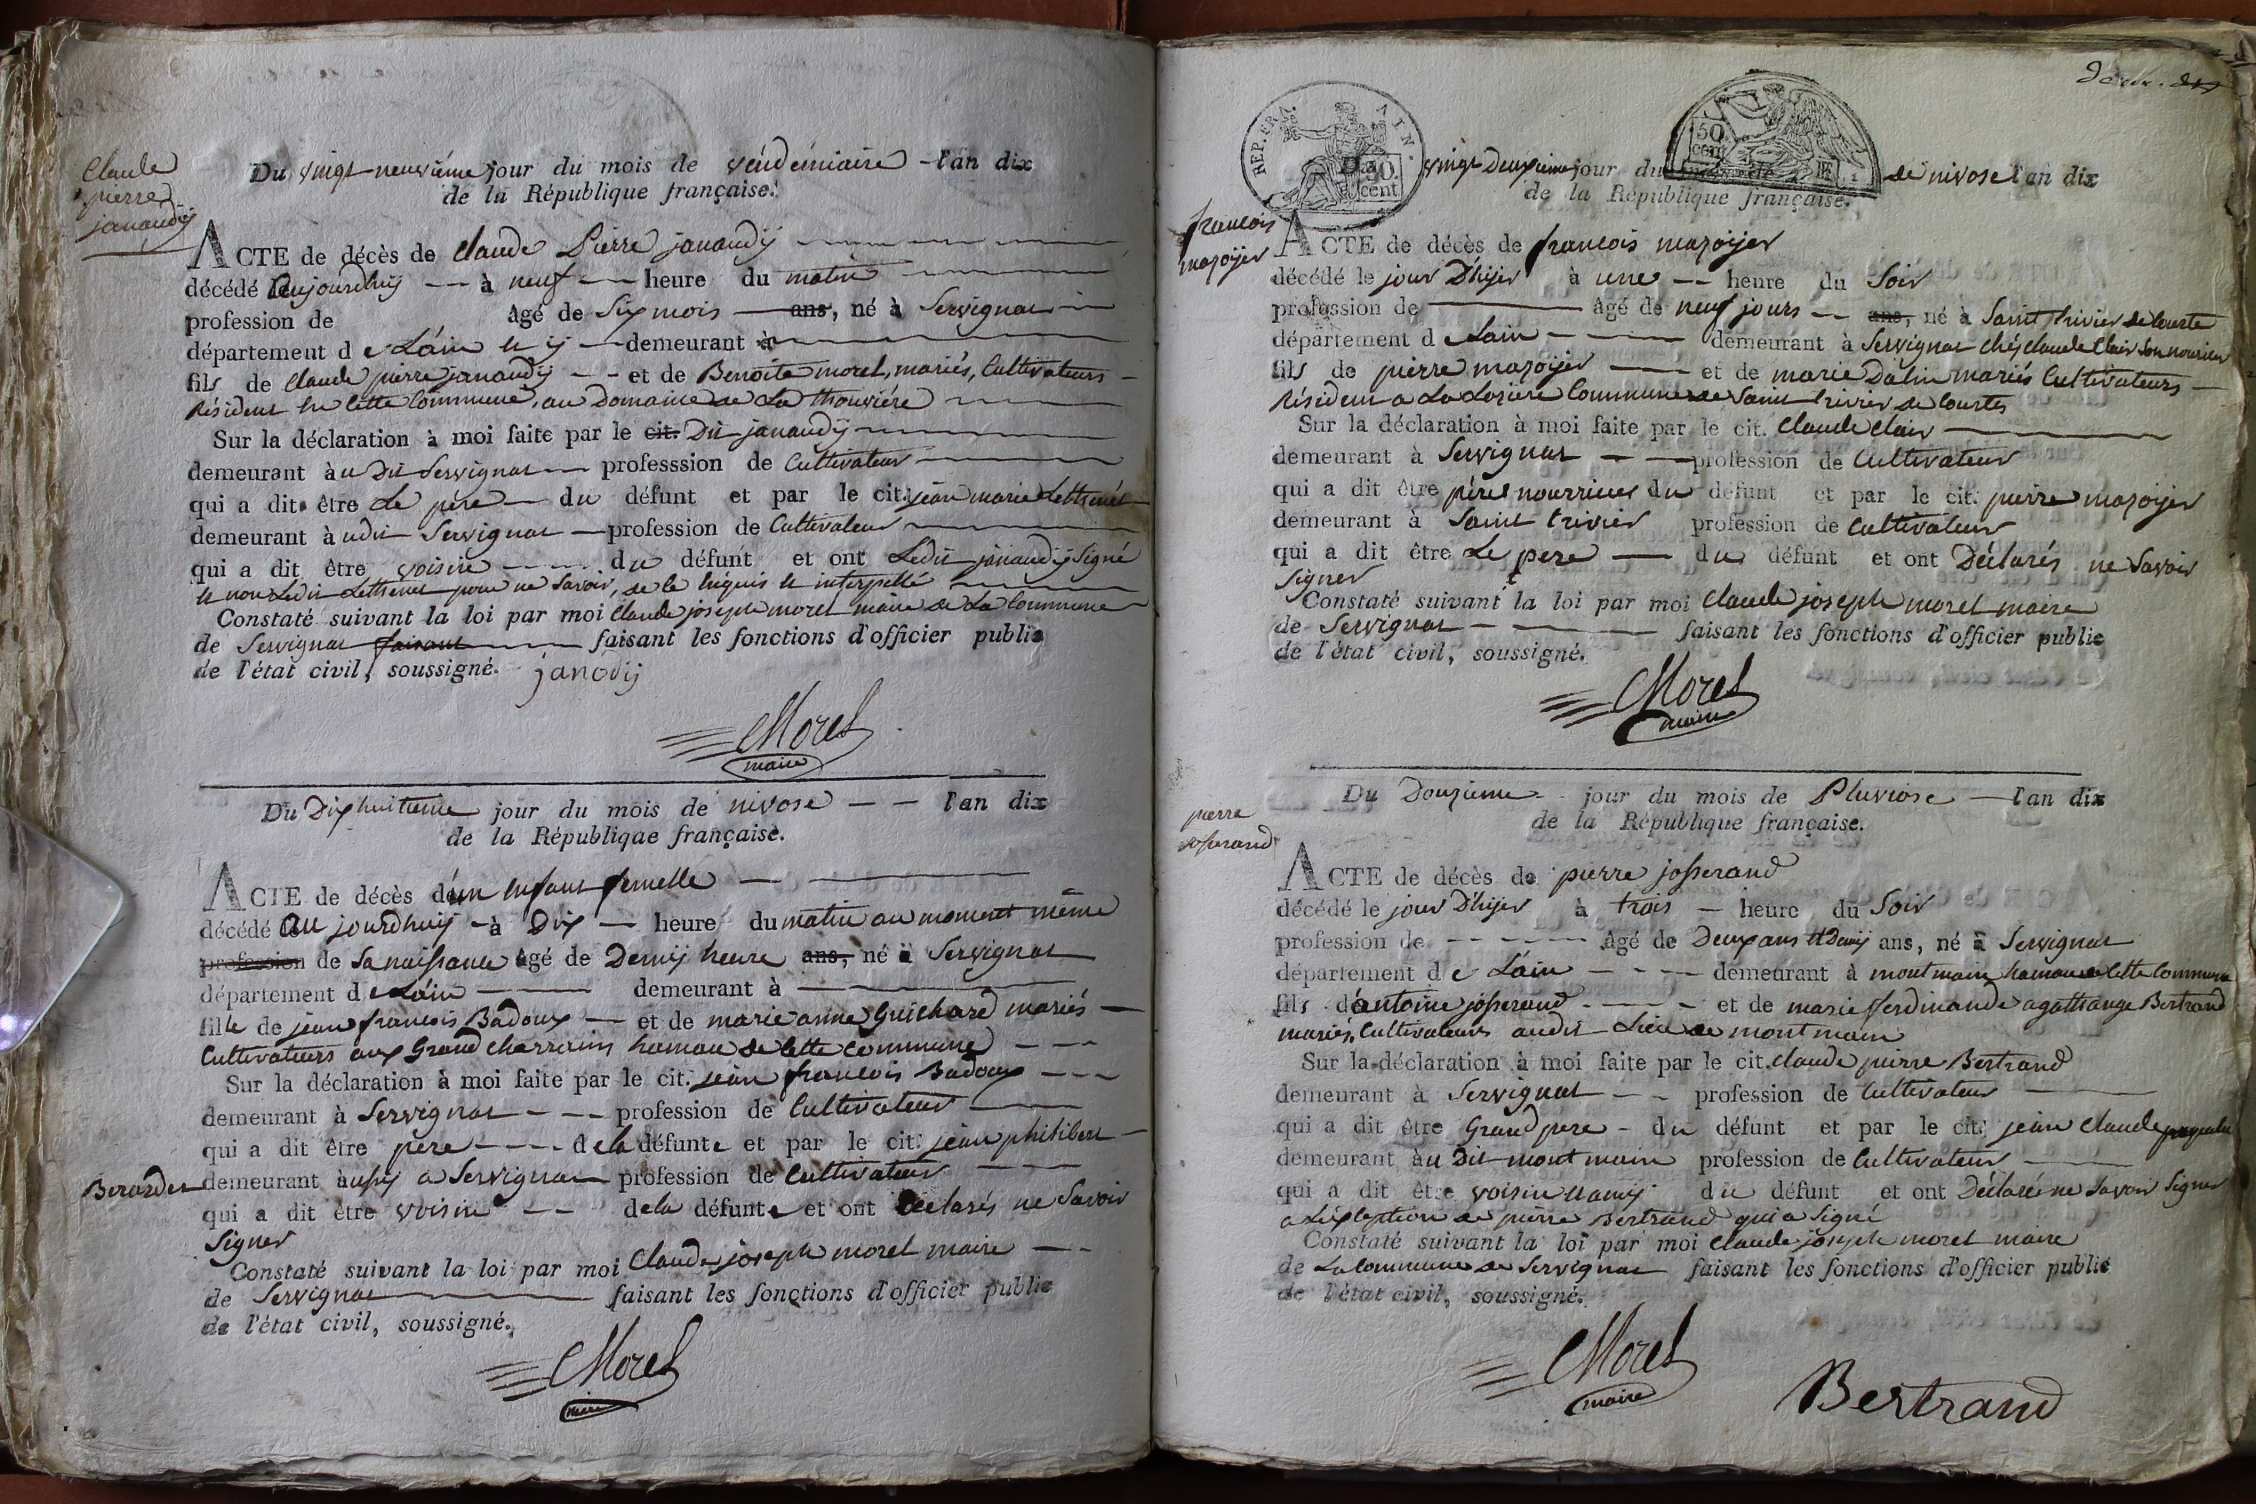 Claude
pierre
janaudy
Du vingt neuvième jour du mois de vendémiaire l'an dix
de la République française.
ACTE de décès de Claude Pierre janaudÿ
décédé aujourdhuÿ à neuf heure du matin
profession de âgé de Six mois ans, né à Servignat
département de Láin demeurant à
fils de Claude pierre janaudÿ et de Benoite morel, mariés, Cultivateurs
Résident en Cette Commune, au Domaine de La thouvière
Sur la déclaration à moi faite par le cit. Dit janaudÿ
demeurant àu Dit Servignat professsion de Cultivateur
qui a dit être Le père du défunt et par le cit. jean marie
demeurant àudit Servignat profession de Cultivateur
qui a dit être voisin du défunt et ont Ledit janaudÿ Signé
et non Ledit pour ne Savoir, de ce enquis et interpellé
Constaté suivant la loi par moi Claude joseph morel maire de La Commune
de Servignat faisant faisant les fonctions d'officier public
de l'état civil, soussigné. janodÿ
Morel
maire
Du Dix huitieme jour du mois de nivose l'an dix
de la République française.
ACTE de décès dún enfant femelle
décédé au jourdhuÿ à Dix heure du matin au moment même
profession de Sa naissance âgé de Demÿ heure ans, né à Servignat
département de Láin demeurant à
fille de jean francois Badoux et de marie anne Guichard mariés
Cultivateurs aux Grand charrains hamau de Cette Commune
Sur la déclaration à moi faite par le cit. jean francois Badoux
demeurant à Servignat profession de Cultivateur
qui a dit être père de la défunte et par le cit. jean philibert
Berardet demeurant àussÿ a Servignat profession de Cultivateur
qui a dit être voisin de la défunte et ont déclarés ne Savoir
Signer
Constaté suivant la loi par moi Claude joseph morel maire
de Servignat faisant les fonctions d'officier public
de l'état civil, soussigné.
Morel
maire
REP. FRA. AIN.
50.
cent
50
cent
Du vingt Deuxieme jour du mois de nivose l'an dix
de la République française.
francois
mazoÿer
ACTE de décès de francois mazoÿer
décédé le jour D'hÿer à une heure du Soir
profession de âgé de neuf jours ans, né à Saint trivier de Courte
département de Lain demeurant à Servignat chés Claude Clair Son nouricier
fils de pierre mazoÿer et de marie Dalin mariés Cultivateurs
Résident a La Lozière Commune de Saint trivier de Courtes
Sur la déclaration à moi faite par le cit. Claude Clair
demeurant à Servignat profession de Cultivateur
qui a dit être père nourricier du défunt et par le cit. pierre mazoÿer
demeurant à Saint trivier profession de Cultivateur
qui a dit être Le pere du défunt et ont Déclarés ne Savoir
Signer
Constaté suivant la loi par moi Claude joseph morel maire
de Servignat faisant les fonctions d'officier public
de l'état civil, soussigné.
Morel
maire
pierre
josserand
Du Douzieme jour du mois de Pluviose l'an dix
de la République française.
ACTE de décès de pierre josserand
décédé le jour D'hÿer à trois heure du Soir
profession de âgé de Deux ans et Demÿ ans, né à Servignat
département de Láin demeurant à montmain hamau de Cette Commune
fils dántoine josserand et de marie ferdinande agathange Bertrand
mariés, Cultivateurs audit Lieu de montmain
Sur la déclaration à moi faite par le cit. Claude pierre Bertrand
demeurant à Servignat profession de Cultivateur
qui a dit être Grand pere du défunt et par le cit. jean Claude
demeurant àu Dit montmain profession de Cultivateur
qui a dit être voisin et amÿ du défunt et ont Déclaré ne Savoir Signer
a Léxception de pierre Bertrand qui a Signé
Constaté suivant la loi par moi Claude joseph morel maire
de La Commune de Servignat faisant les fonctions d'officier public
de l'état civil, soussigné.
Morel
maire
Bertrand